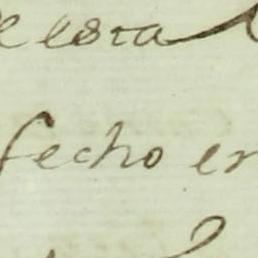 esta
fecho en